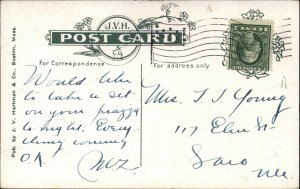 J.V.H.
POST CARD
For Correspondence
For address only
Pub. by J. V. Hartman & Co., Boston, Mass.
Would like
to take a set
on your piazza
to night. Every
thing coming
O.K.
Mrs. T. J. Young
117 Elm St
Saco
Me.